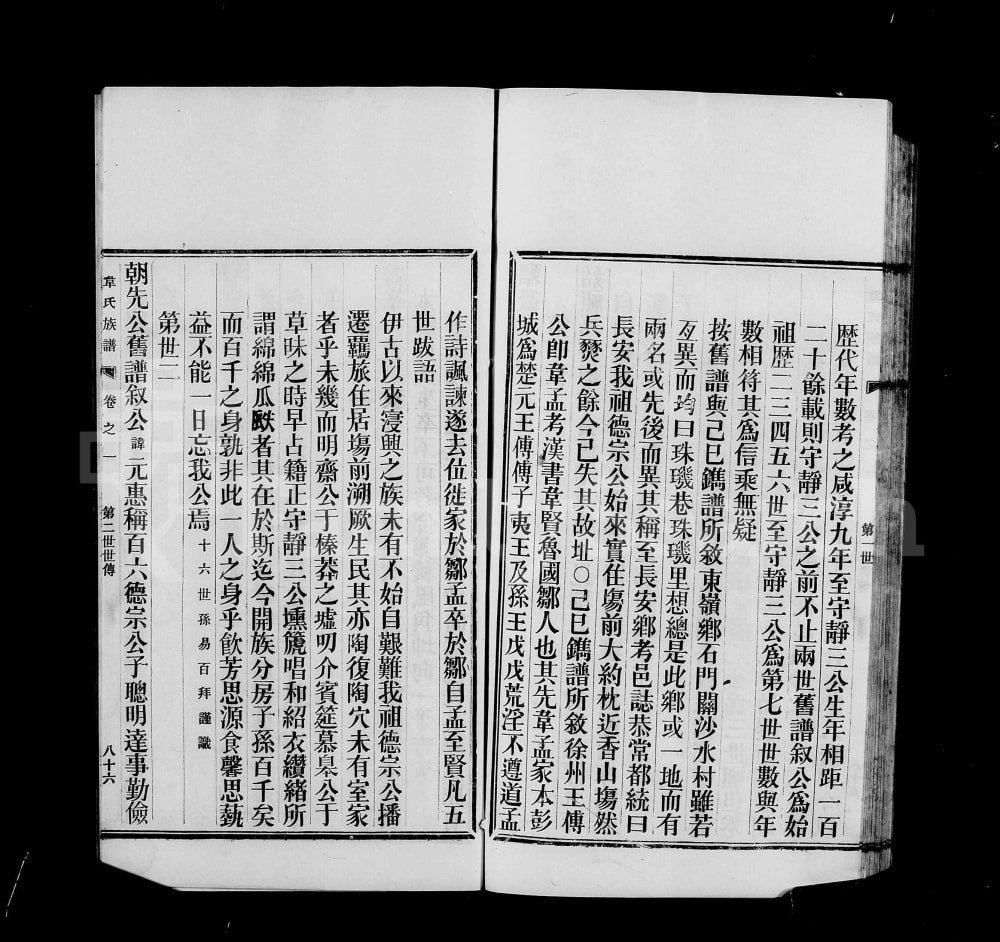 歷代年數考之咸淳九年至守靜三公生年相距一百
二十餘載則守靜三公之前不止兩世舊譜叙公爲始
祖歷二三四五六世至守靜三公爲第七世世數與年
數相符其爲信乘無疑
按舊譜與己巳鐫譜所敘東嶺鄉石門關沙水村雖若
互異而均曰珠璣巷珠璣里想總是此鄉或一地而有
兩名或先後而異其稱至長安鄉考邑誌恭常都統曰
長安我祖德宗公始來實住塲前大約枕近香山塲然
兵燹之餘今已失其故址〇己巳鐫譜所敘徐州王傅
公卽韋孟考漢書韋賢魯國鄒人也其先韋孟家本彭
城爲楚元王傅傅子夷王及孫王戊戊荒淫不遵道孟
第一世
作詩諷諫遂去位徙家於鄒孟卒於鄒自孟至賢凡五
世跋語
伊古以來寖興之族未有不始自艱難我祖德宗公播
遷羈旅住居塲前溯厥生民其亦陶復陶穴未有室家
者乎未幾而明齋公于榛莽之墟叨介賓筵慕皋公于
草昧之時早占籍正守靜三公壎篪唱和紹衣纘緒所
謂綿綿瓜瓞者其在於斯迄今開族分房子孫百千矣
而百千之身孰非此一人之身乎飲芳思源食馨思蓺
益不能一日忘我公焉 十六世孫易百拜謹識
第世二
朝先公舊譜叙公諱元惠稱百六德宗公子聰明達事勤儉
韋氏族譜 卷之一 第二世世傳 八十六